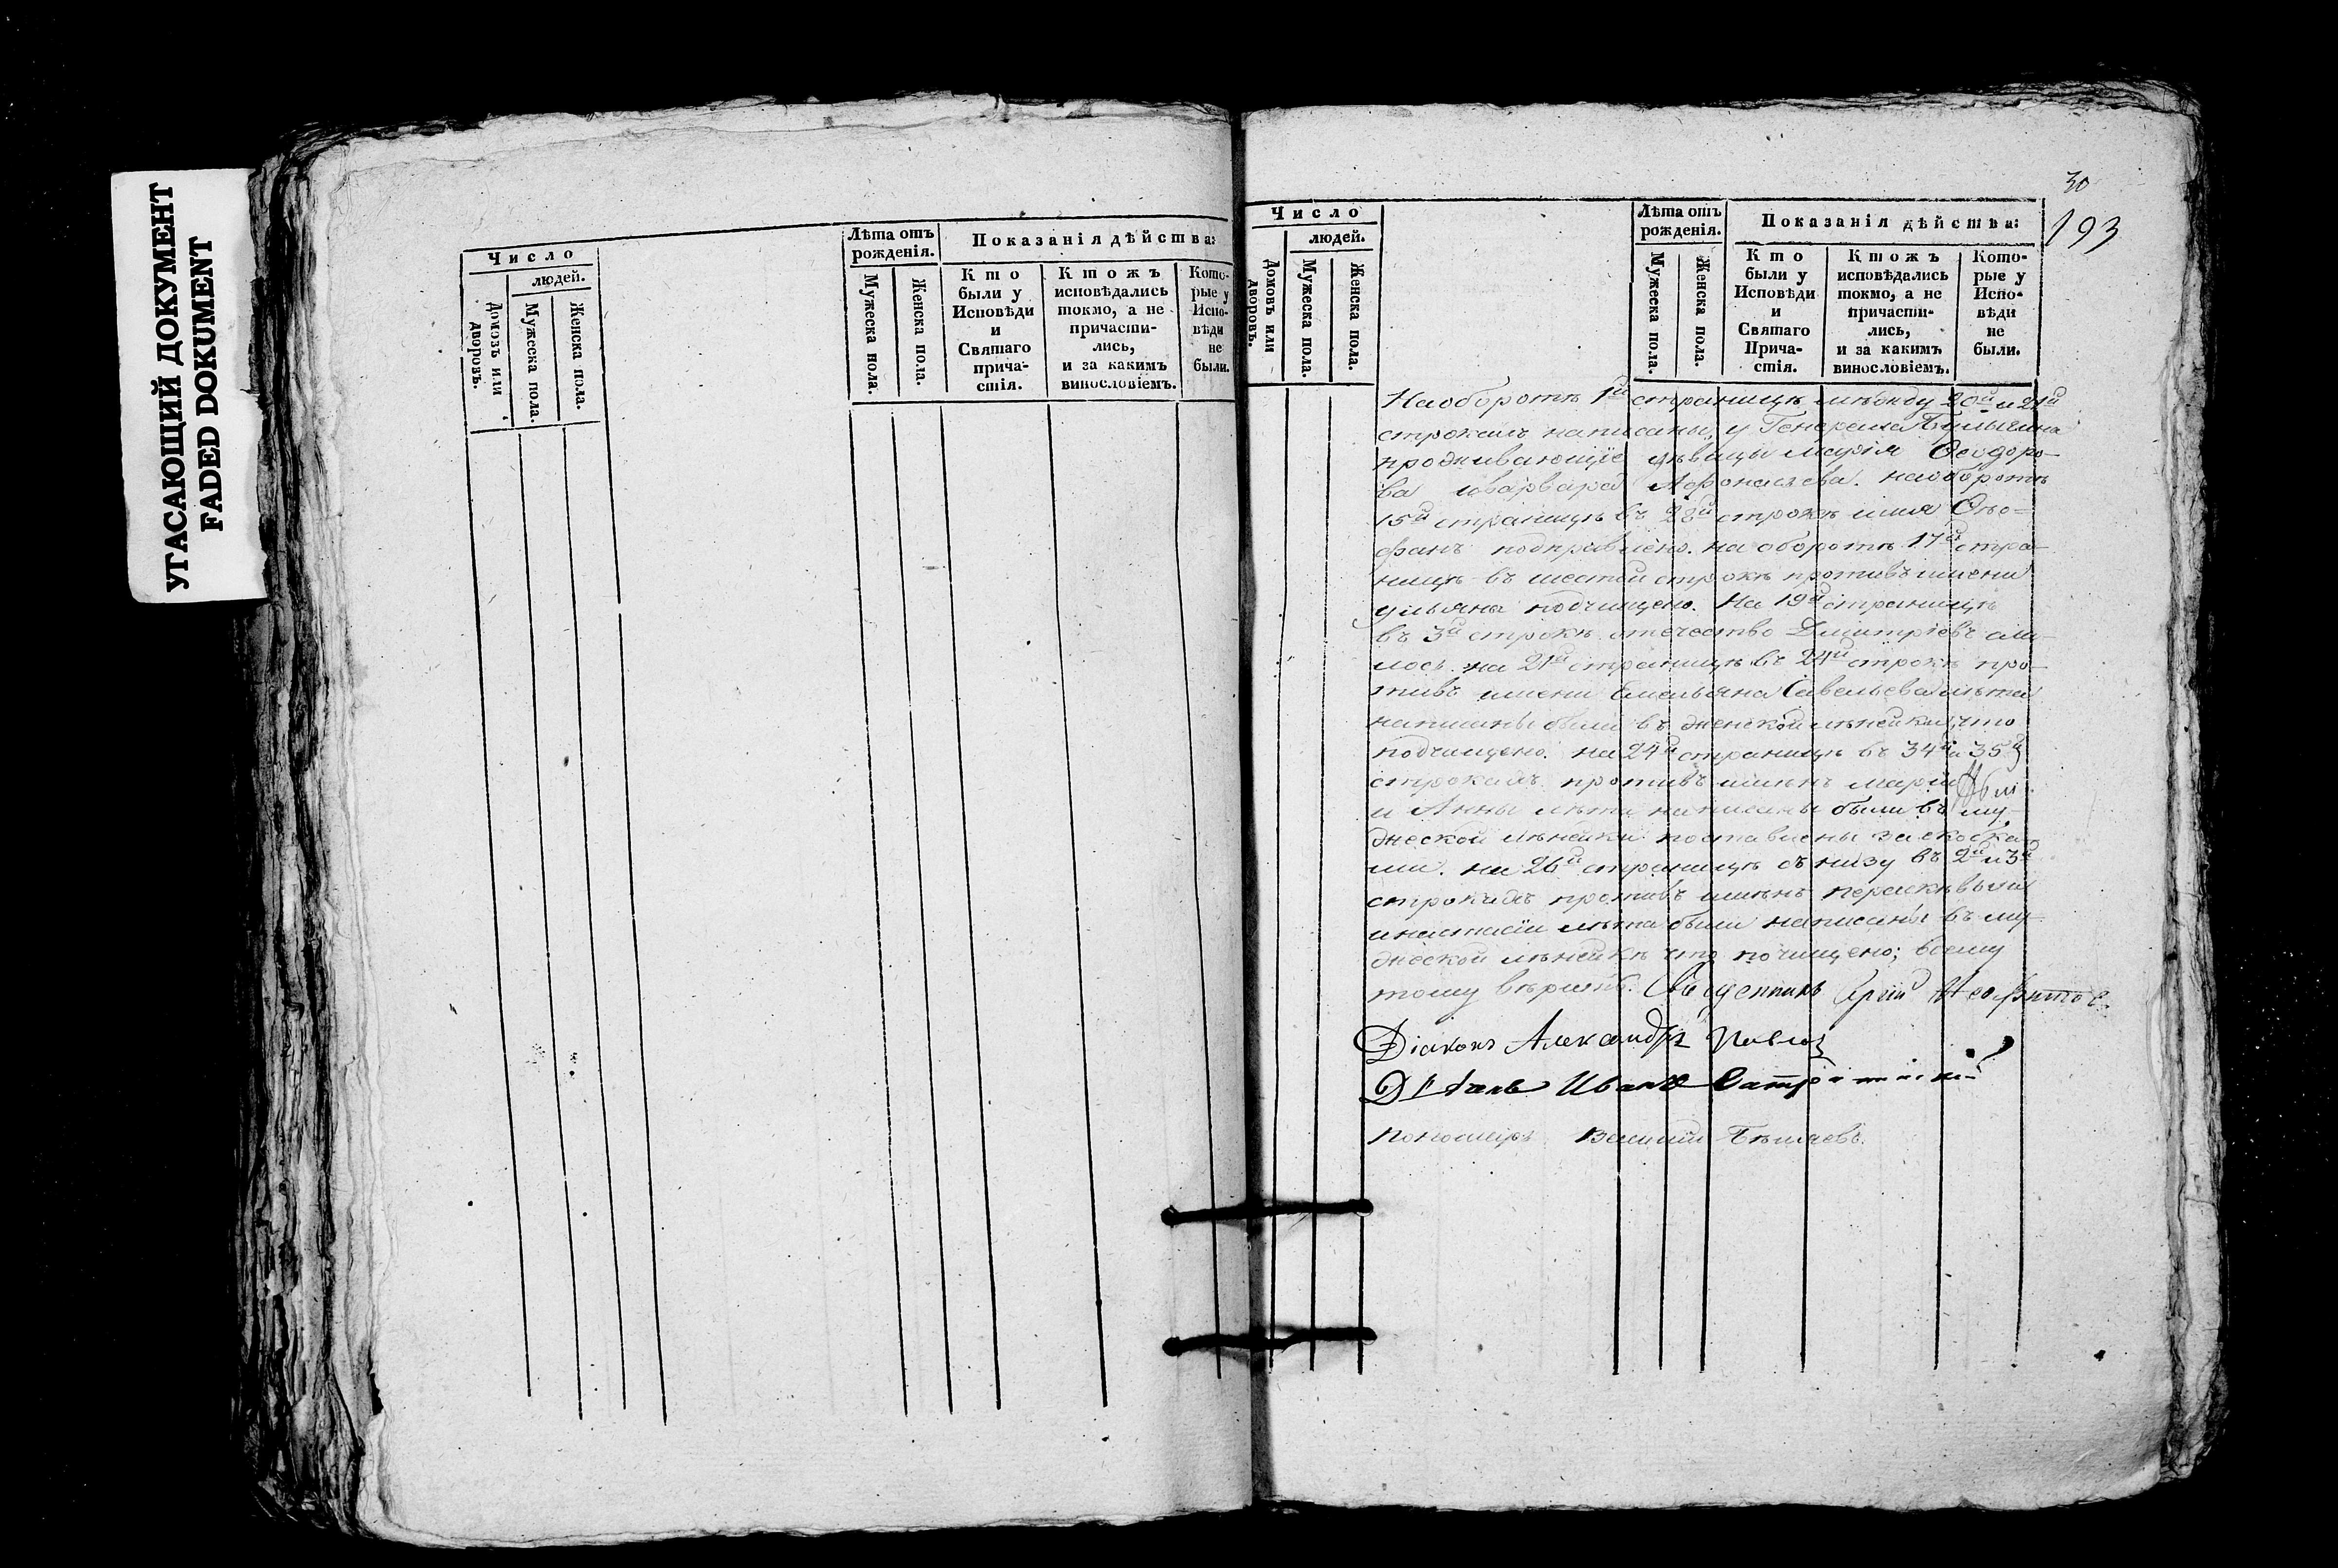 УГАСАЮЩИЙ ДОКУМЕНТ
FADED DOKUMENT
Число
людей.
Домовъ или дворовъ.
Мужеска пола.
Женска пола.
Лѣта отъ рожденія.
Мужеска пола.
Женска пола.
Показанія дѣйства:
Кто были у Исповѣди и Святаго прича-стія.
Ктожъ исповѣдались токмо, а не причасти-лись, и за какимъ винословіемъ.
Кото-рые у Испо-вѣди не были.
30
193
Число
людей.
Домовъ или дворовъ.
Мужеска пола.
Женска пола.
Лѣта отъ рожденія.
Мужеска пола.
Женска пола.
Показанія дѣйства:
Кто были у Исповѣди и Святаго Прича-стія.
Ктожъ исповѣдались токмо, а не причасти-лись, и за какимъ винословіемъ.
Кото-рые у Испо-вѣди не были.
На оборотѣ 1й страницѣ между 20й и 21й
строкамъ написаны, у Генерала
проживающіе дѣвицы Марія Ѳеодоро-
ва и Варвара Афонасьева. на оборотѣ
15й страницѣ въ 28й строкѣ имя Ѳео-
фанъ подправлено. на оборотѣ 17й стра-
ницѣ въ шестой строкѣ противъ имени
ульяны подчищено. На 19й страницѣ
въ 3й строкѣ отечество Дмитріевъ сли-
лось. на 21й страницѣ въ 24й строкѣ про-
тивъ имени Емельяна Савельева лѣта
написаны были въ женской лѣнейки, что
подчищено. на 24й страницѣ въ 34й и 35й
строкахъ противъ имѣнъ Маріи
и Анны лѣта написаны были въ му-
жеской лѣнейки поставлены за скобка-
ми. на 26й страницѣ съ низу въ 2й и 3й
строкахъ противъ имѣнъ перасквыи
и настасіи лѣта были написаны въ му-
жеской лѣнейкѣ что почищено; всему
тому вѣримъ. Священникъ Сергій Неофитов
Діаконъ Александръ Павлов
Дьячекъ Иванъ
Пономарь Василій Бѣляевъ.